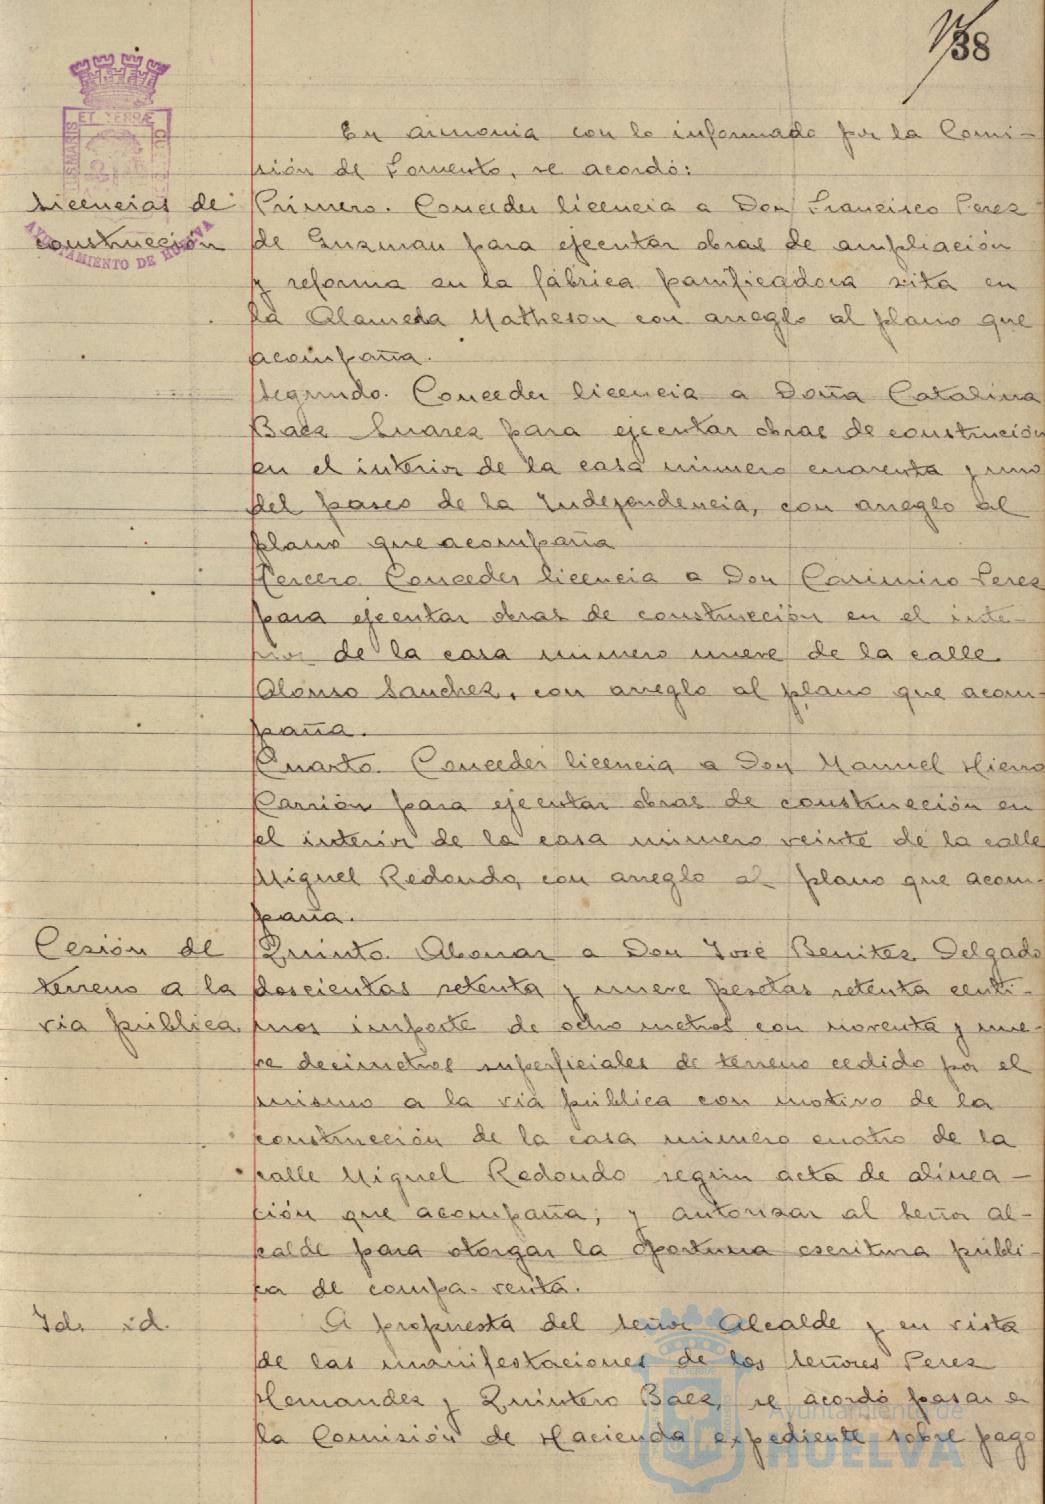 38
ET TERRÆ
AYUNTAMIENTO DE HUELVA
En armonia con lo informado por la Comi-
sión de Fomento, se acordó:
Licencias de
construcción
Primero. Conceder licencia a Don Francisco Perez
de Guzman para ejecutar obras de ampliación
y reforma en la fábrica panificadora sita en
la Alameda Matheson con arreglo al plano que
acompaña.
Segundo. Conceder licencia a Doña Catalina
Baez Suarez para ejecutar obras de construcción
en el interior de la casa número cuarenta y uno
del paseo de la Independencia, con arreglo al
plano que acompaña
Tercero Conceder licencia a Don Casimiro Perez
para ejecutar obras de construcción en el inte-
rior de la casa número nueve de la calle
Alonso Sanchez, con arreglo al plano que acom-
paña.
Cuarto. Conceder licencia a Don Manuel Hierro
Carrión para ejecutar obras de construcción en
el interior de la casa número veinte de la calle
Miguel Redondo, con arreglo al plano que acom-
paña.
Cesión de
terreno a la
via pública.
Quinto. Abonar a Don José Benitez Delgado
doscientas setenta y nueve pesetas setenta centi-
mos importe de ocho metros con noventa y nue-
ve decimetros superficiales de terreno cedido por el
mismo a la via pública con motivo de la
construcción de la casa número cuatro de la
calle Miguel Redondo según acta de alinea-
ción que acompaña; y autorizar al señor al-
calde para otorgar la oportuna escritura públi-
ca de compa-venta.
Id. id.
A propuesta del señor Alcalde y en vista
de las manifestaciones de los señores Perez
Hernandez y Quintero Baez, se acordó pasar a
la Comisión de Hacienda expediente sobre pago
Ayuntamiento de
HUELVA